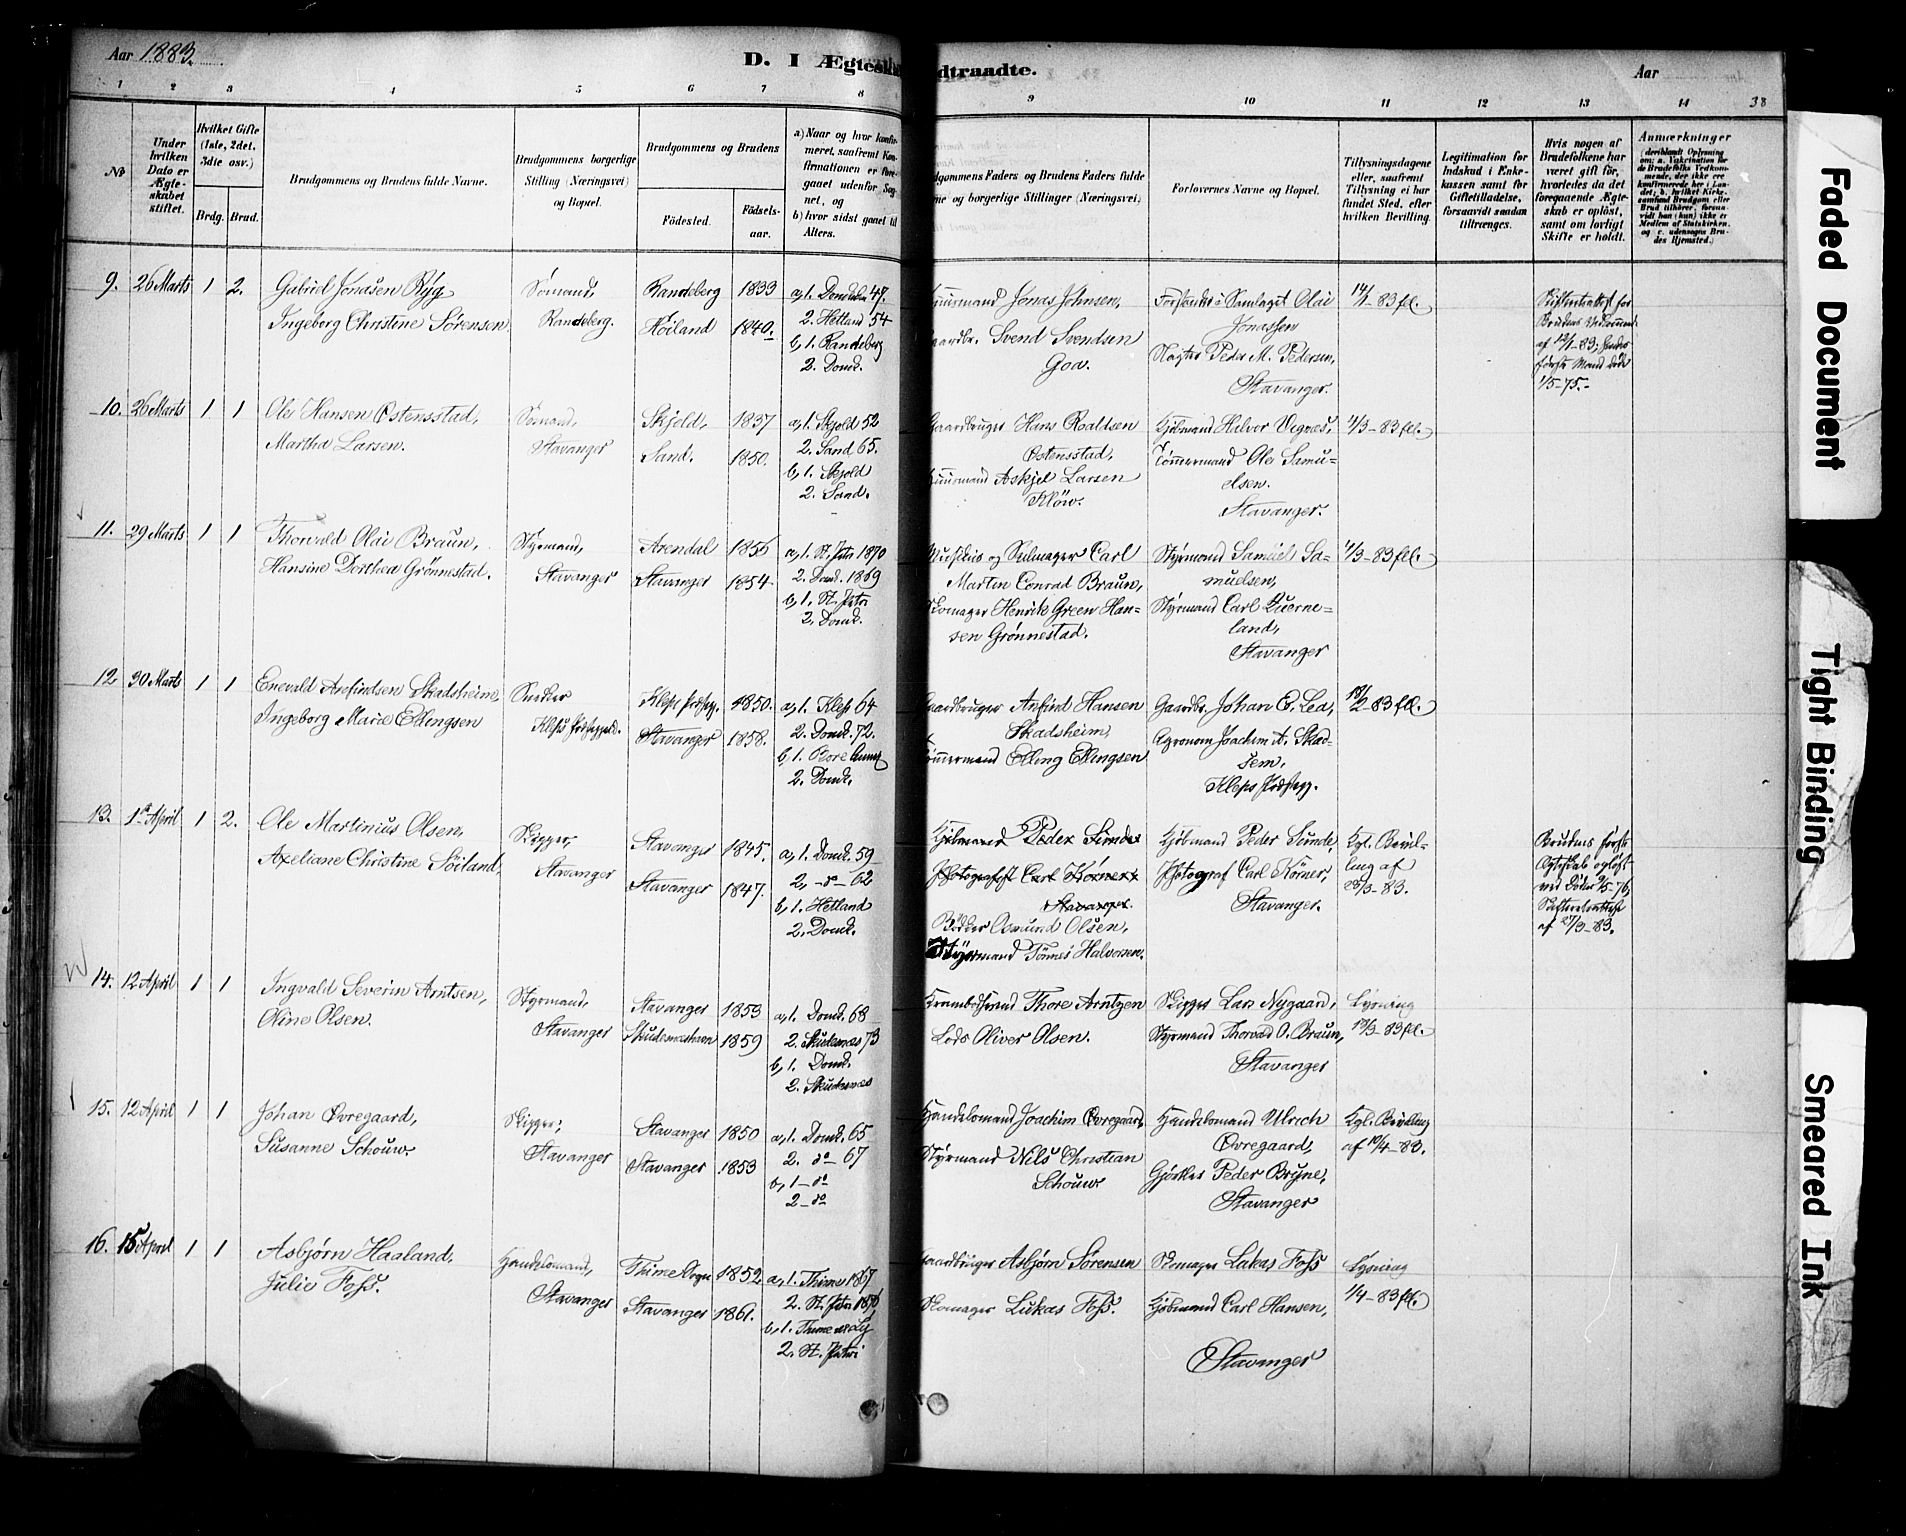 Aar 1883. D. I Ægteskab Indtraadte. Aar
1 2 3 4 5 6 7 8 9 10 11 12 13 14 38
No
Under hvilken Dato er Ægteskabet stiftet.
Hvilket Gifte (1ste, 2det, 3die osv.)
Brdg. Brud.
Brudgommens og Brudens fulde Navne.
Brudgommens borgerlige Stilling (Næringsvei) og Bopæl.
Brudgommens og Brudens
Fødested. Fødsels-aar.
a) Naar og hvor konfirmeret, saafremt Konfirmationen er foregaaet udenfor Sognet, og
b) hvor sidst gaaet til Alters.
dgommens Faders og Brudens Faders fulde
ne og borgerlige Stillinger (Næringsvei)
Forlovernes Navne og Bopæl.
Tillysningsdagene eller, saafremt Tillysning ei har fundet Sted, efter hvilken Bevilling.
Legitimation for Indskud i Enkekassen samt for Giftetilladelse, forsaavidt saadan tiltrænges.
Hvis nogen af Brudefolkene har været gift før, hvorledes da det foregaaende Ægteskab er opløst, samt om lovligt Skifte er holdt.
Anmærkninger
9. 26 Marts 1 2. Gabriel Jonasen Ryg Sømand, Randeberg 1839 a, 1. Domk 47.
Ingeborg Christine Sørensen Randeberg. Høiland 1840. 2. Hetland 54
b, 1. Randeberg
2. Domk.
Huusmand Jonas Johnsen,
Gaardbr. Svend Svendsen
Goa.
Forstander i Samlaget Olai
Jonassen
Slagter Peder M. Pedersen,
Stavanger.
14/1-83 fl.
Skifteattest for
Brudens Vedkommende
af 12/1-83; hendes
første Mand død
1/5-75.-
10. 26 Marts 1 1 Ole Hansen Østensstad, Sømand, Skjold, 1837 a, 1. Skjold 52
Martha Larsen. Stavanger Sand. 1850. 2. Sand 65.
b, 1. Skjold
2. Sand.
Gaardbruger Hans Roaldsen
Østensstad,
Huusmand Askjel Larsen
Kløw.
Kjøbmand Helvor Vegnæs,
Tømmermand Ole Samu-
elsen.
Stavanger.
4/3-83 fl.
11. 29 Marts 1 1 Thorvald Olai Braun, Styrmand, Arendal 1855 a, 1. St. Petri 1870
Hansine Dorthea Grønnestad. Stavanger Stavanger 1854. 2. Domk. 1869
b, 1. St. Petri
2. Domk.
Musikus og Seilmager Carl
Martin Conrad Braun,
Skomager Henrik Green Han-
sen Grønnestad.
Styrmand Samuel Sa-
muelsen,
Styrmand Carl Querne-
land,
Stavanger
4/3-83 fl.
12 30 Marts 1 1 Enevald Arefindsen Skadsheim, Snedker Kleps Præstegj. 1850. a, 1. Klep 64
Ingeborg Marie Ellingsen Kleps Præstegjeld. Stavanger 1858. 2. Domk. 72.
2. Domk.
Gaardbruger Anfind Hansen
Skadsheim,
Tømmermand Elling Ellingsen
Gaardbr. Johan E. Lea,
Agronom Joachim A. Skad-
sem,
Kleps Præstegj.
18/2-83 fl.
13. 1ste April 1 2. Ole Martinius Olsen, Skipper, Stavanger 1845. a, 1. Domk. 59
Axeliane Christine Søiland, Stavanger Stavanger 1847. 2, -do- 62
b, 1. Hetland
2. Domk.
Kjøbmand Peder Sunde
Photografist Carl Kørner
Stavanger.
Bødker Osmund Olsen,
Styrmand Tønnes Halvorsen.
Kjøbmand Peder Sunde,
Photograf Carl Kørner,
Stavanger.
Kgl. Bevil-
ling af
28/3-83.
Brudens første
Ægteskab opløst
ved Døden 9/5-76,
Skifteattest
af 27/3-83.
14. 12 April 1 1 Ingvald Severin Arntsen, Styrmand, Stavanger 1853 a, 1. Domk. 68
Oline Olsen. Stavanger Skudesneshavn 1859 2. Skudesnes 73
b, 1. Domk.
2. Skudesnæs
Thore Arntzen
Lods Oliver Olsen.
Skipper Lars Nygaard,
Styrmand Thorvald O. Braun,
Stavanger
Lysning
18/3-83 fl.
15. 12 April 1 1 Johan Øvregaard, Skipper, Stavanger 1850 a, 1. Domk. 65
Susanne Schouw. Stavanger Stavanger 1853 2. do- 67
b, 1 - do
2 - do
Handelsmand Joachim Øvregaard,
Styrmand Nils Christian
Schouw
Handelsmand Ulrich
Øvregaard,
Gjørtler Peder Bryne,
Stavanger
Kgl. Bevilling
af 10/4-83.
16. 15 April 1 1 Asbjørn Haaland, Handelsmand, Thime Sogn 1852 a, 1. Thime 1867
Julie Foss. Stavanger Stavanger 1861. 2. St. Petri 1876
2. St. Petri
Gaardbruger Asbjørn Sørensen
Skomager Lukas Foss.
Skomager Lukas Foss
Kjøbmand Carl Hansen,
Stavanger
Lysning
1/4-83 fl.
Faded Document
Tight Binding
Smeared Ink